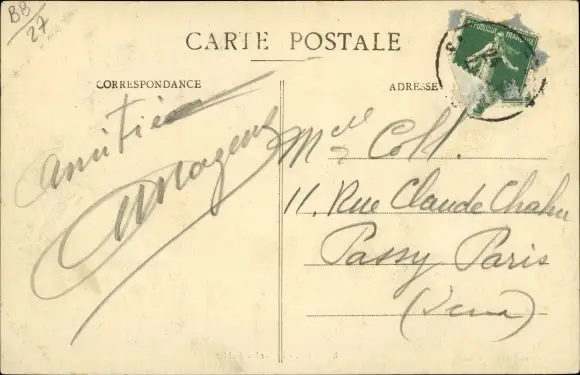 BB
27
CARTE POSTALE
CORRESPONDANCE
ADRESSE
REPUBLIQUE FRANÇAISE
Amitiés
Mlle Coll.
11. Rue Claude Chahu
Passy Paris
(Seine)